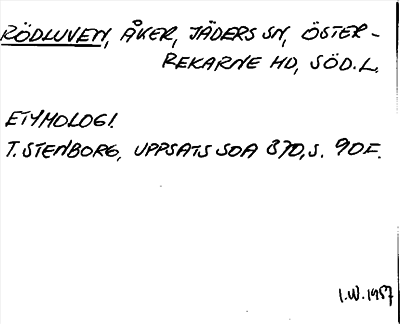 RÖDLUVEN, ÅKER, JÄDERS SN, ÖSTER-
REKARNE HD, SÖD.L.
ETYMOLOGI.
T. STENBORG, UPPSATS SOA 870, S. 90F.
I.W. 1957